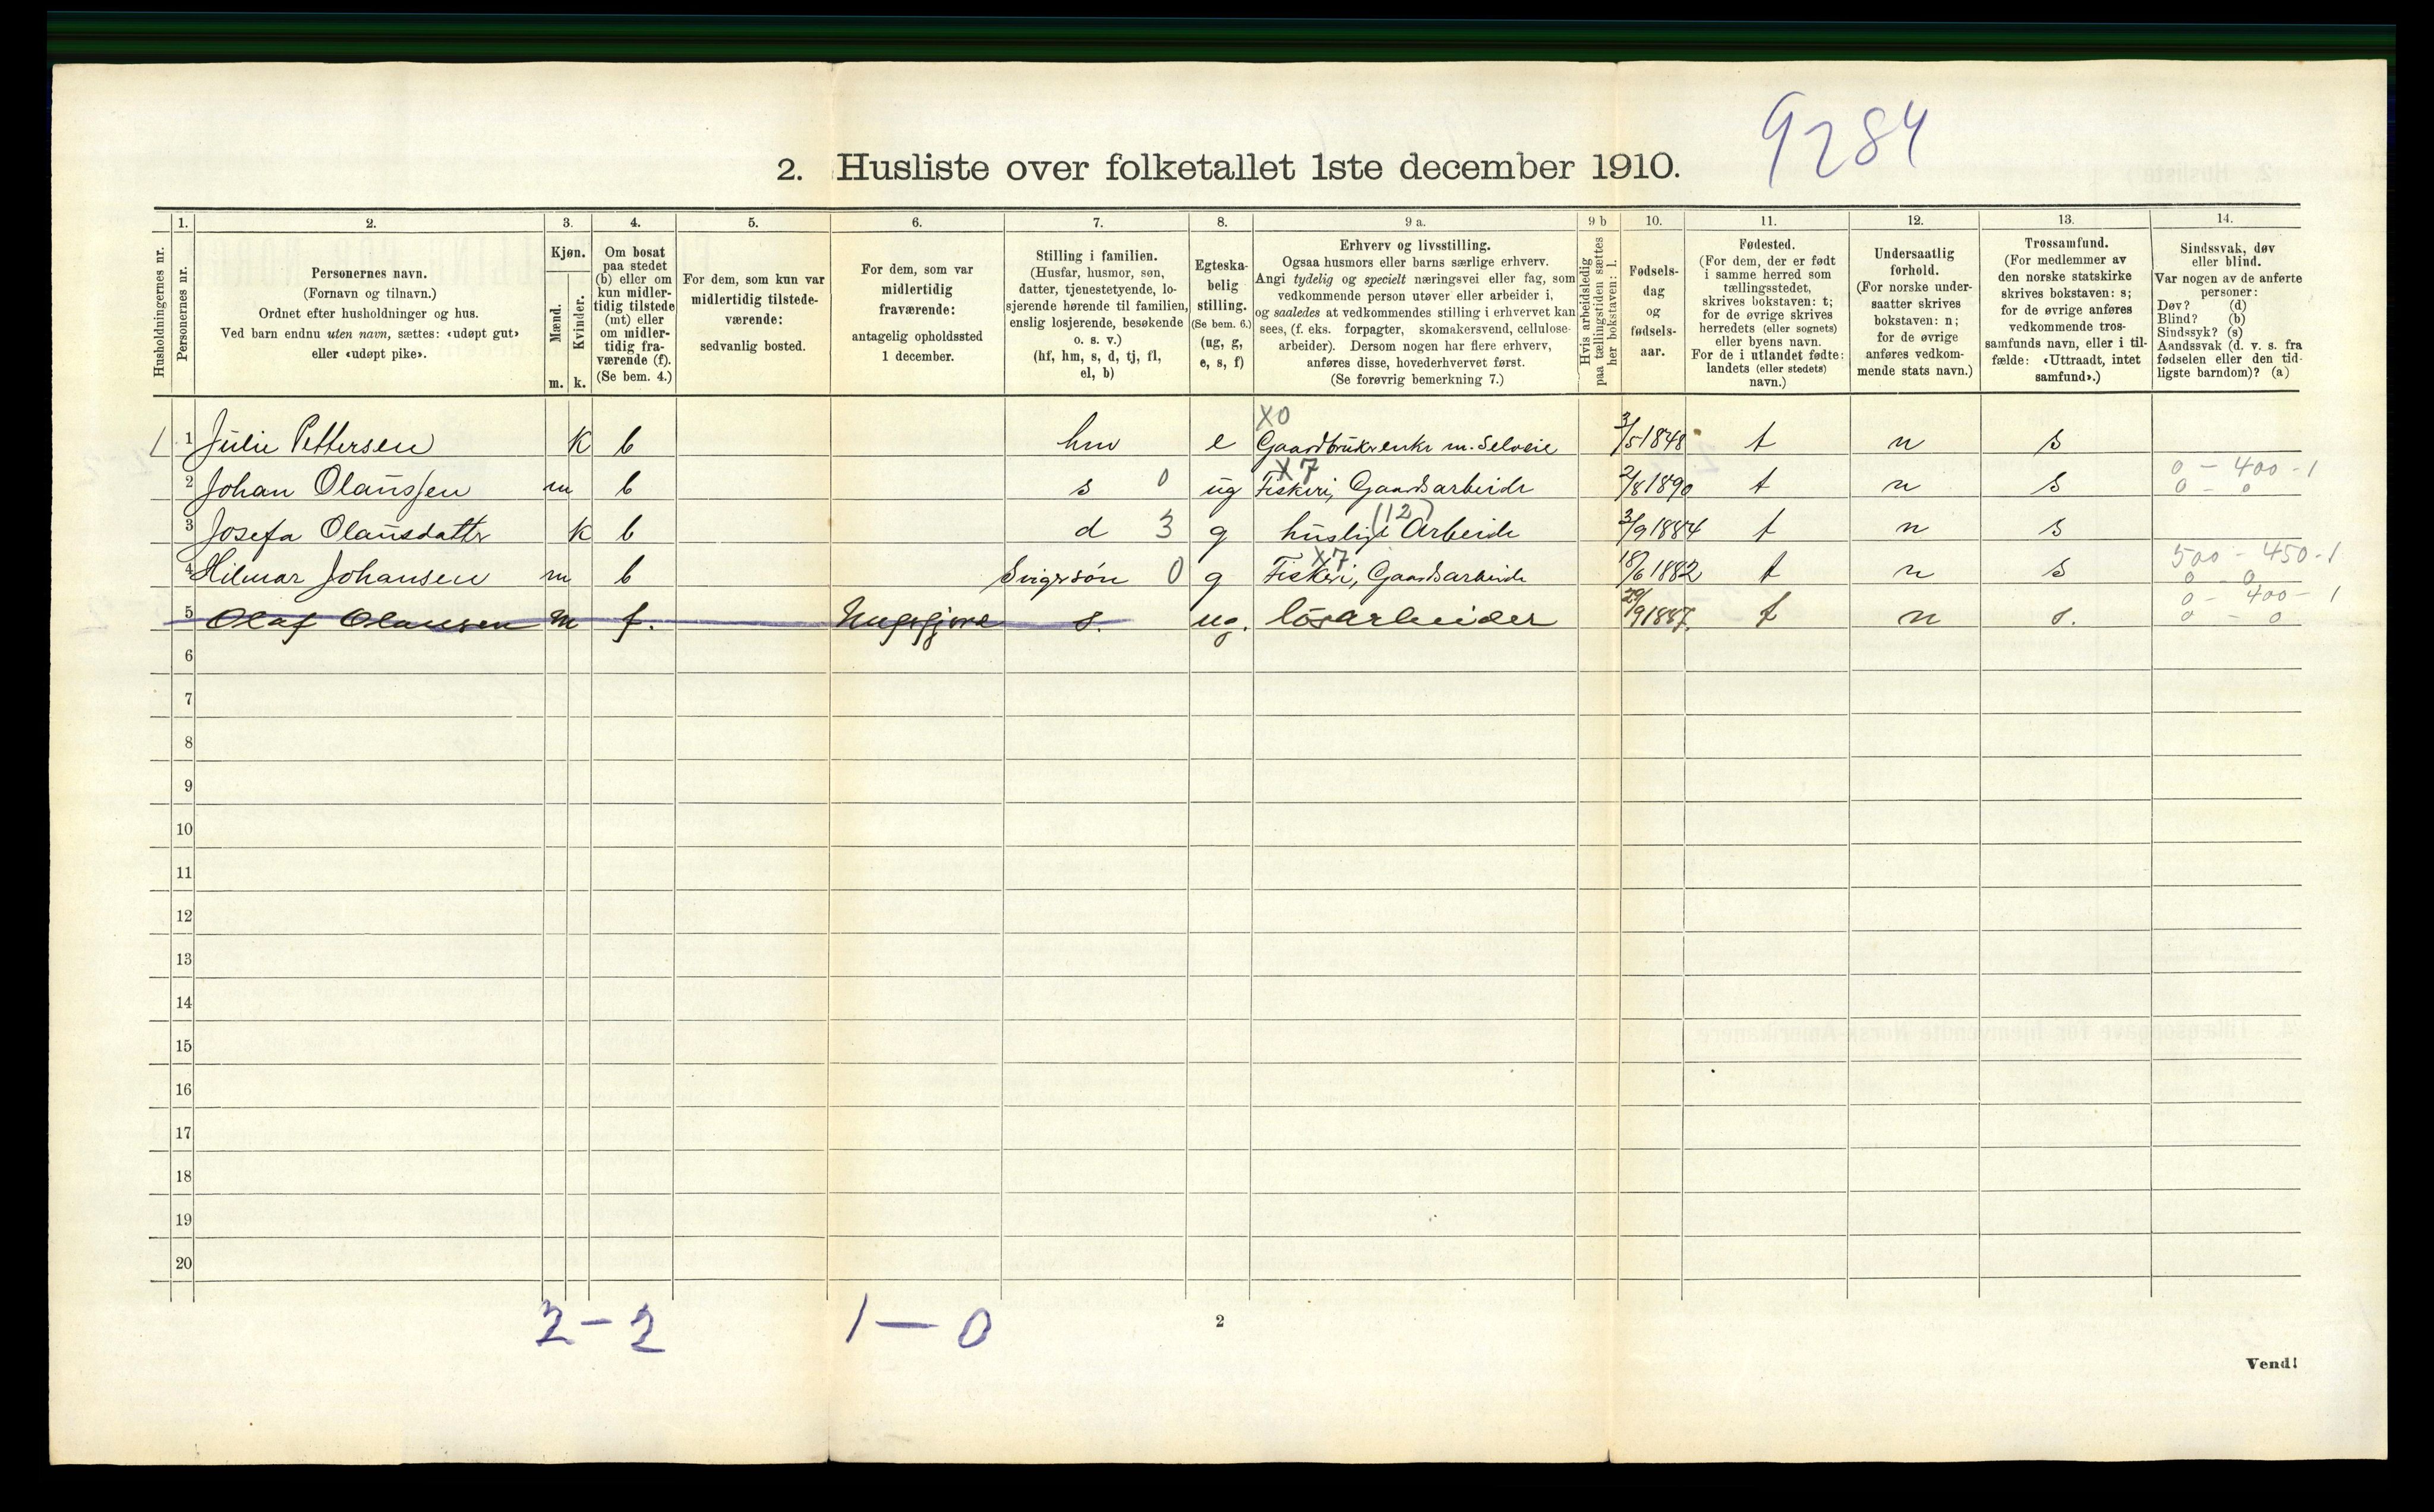 9284
2. Husliste over folketallet 1ste december 1910.
Husholdningernes nr.
1. Personernes nr.
2. Personernes navn.
(Fornavn og tilnavn.)
Ordnet efter husholdninger og hus.
Ved barn endnu uten navn, sættes: «udøpt gut»
eller «udøpt pike».
3. Kjøn.
Mænd. m.
Kvinder. k.
4. Om bosat
paa stedet
(b) eller om
kun midler-
tidig tilstede
(mt) eller
om midler-
tidig fra-
værende (f).
(Se bem. 4.)
5. For dem, som kun var
midlertidig tilstede-
værende:
sedvanlig bosted.
6. For dem, som var
midlertidig
fraværende:
antagelig opholdssted
1 december.
7. Stilling i familien.
(Husfar, husmor, søn,
datter, tjenestetyende, lo-
sjerende hørende til familien,
enslig losjerende, besøkende
o. s. v.)
(hf, hm, s, d, tj, fl,
el, b)
8. Egteska-
belig
stilling.
(Se bem. 6.)
(ug, g,
e, s, f)
9 a. Erhverv og livsstilling.
Ogsaa husmors eller barns særlige erhverv.
Angi tydelig og specielt næringsvei eller fag, som
vedkommende person utøver eller arbeider i,
og saaledes at vedkommendes stilling i erhvervet kan
sees, (f. eks. forpagter, skomakersvend, cellulose-
arbeider). Dersom nogen har flere erhverv,
anføres disse, hovederhvervet først.
(Se forøvrig bemerkning 7.)
9 b Hvis arbeidsledig
paa tællingstiden sættes
her bokstaven: l.
10. Fødsels-
dag
og
fødsels-
aar.
11. Fødested.
(For dem, der er født
i samme herred som
tællingsstedet,
skrives bokstaven: t;
for de øvrige skrives
herredets (eller sognets)
eller byens navn.
For de i utlandet fødte:
landets (eller stedets)
navn.)
12. Undersaatlig
forhold.
(For norske under-
saatter skrives
bokstaven: n;
for de øvrige
anføres vedkom-
mende stats navn.)
13. Trossamfund.
(For medlemmer av
den norske statskirke
skrives bokstaven: s;
for de øvrige anføres
vedkommende tros-
samfunds navn, eller i til-
fælde: «Uttraadt, intet
samfund».)
14. Sindssvak, døv
eller blind.
Var nogen av de anførte
personer:
Døv? (d)
Blind? (b)
Sindssyk? (s)
Aandssvak (d. v. s. fra
fødselen eller den tid-
ligste barndom)? (a)
X0
1 1 Julie Pettersen K b hm e Gaardbrukerenke m. Selveie 3/5 1848 t n s
X7
2 Johan Olaussen m b s 0 ug Fiskeri, Gaardsarbeide 2/8 1890 t n s 0 - 400 - 1
0 - 0
(12)
3 Josefa Olausdatter K b d 3 g huslige Arbeide 3/9 1884 t n s
X7
4 Hilmar Johansen m b Svigersøn 0 g Fiskeri, Gaardsarbeide 18/6 1882 t n s 500 - 450 - 1
0 - 0
5 Olaf Olausen m f. s. ug. løsarbeider 29/9 1887. t n s. 0 - 400 - 1
0 - 0
6
7
8
9
10
11
12
13
14
15
16
17
18
19
20
2 - 2 1 - 0
2
Vend!